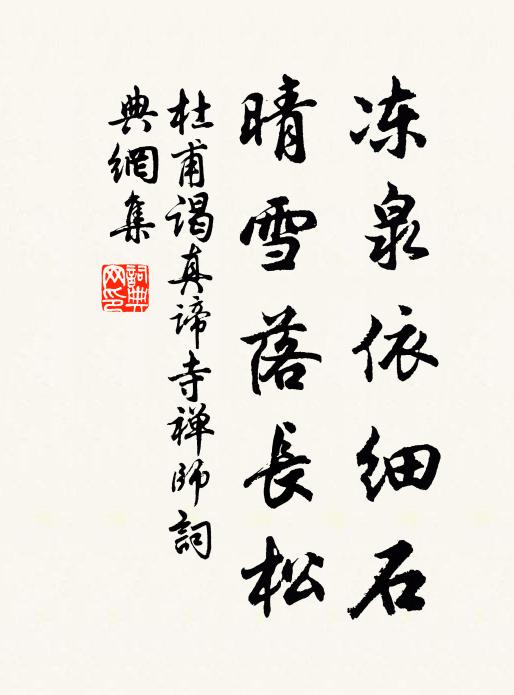 冻泉依细石
晴雪落長松
杜甫謁真諦寺禅師詞
典網集
詞典網印